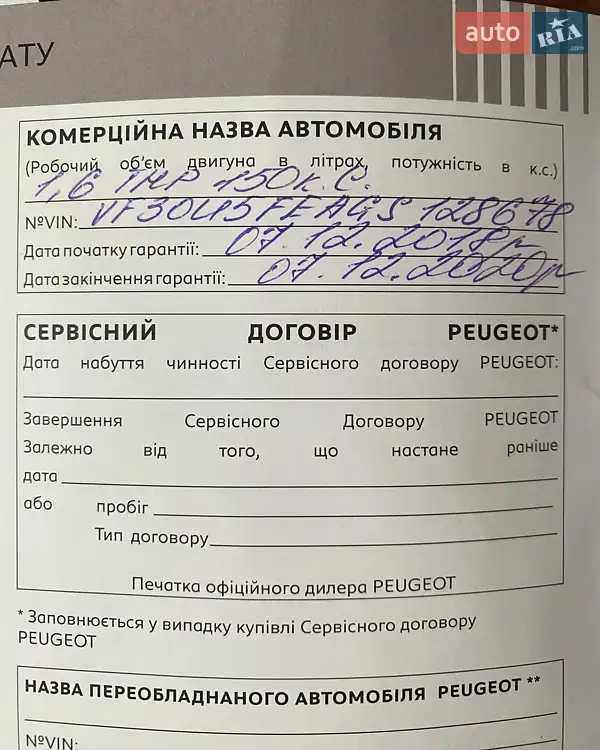 auto RIA .com
АТУ
КОМЕРЦІЙНА НАЗВА АВТОМОБІЛЯ
(Робочий об'єм двигуна в літрах, потужність в к.с.)
1,6 THP 150 к.с.
№VIN: VF3 0U5FEAGS 128678
Дата початку гарантії: 07.12.2018р
Дата закінчення гарантії: 07.12.2020р
СЕРВІСНИЙ ДОГОВІР PEUGEOT*
Дата набуття чинності Сервісного договору PEUGEOT:
Завершення Сервісного Договору PEUGEOT
Залежно від того, що настане раніше
дата
або пробіг
Тип договору
Печатка офіційного дилера PEUGEOT
* Заповнюється у випадку купівлі Сервісного договору
PEUGEOT
НАЗВА ПЕРЕОБЛАДНАНОГО АВТОМОБІЛЯ PEUGEOT **
№VIN: